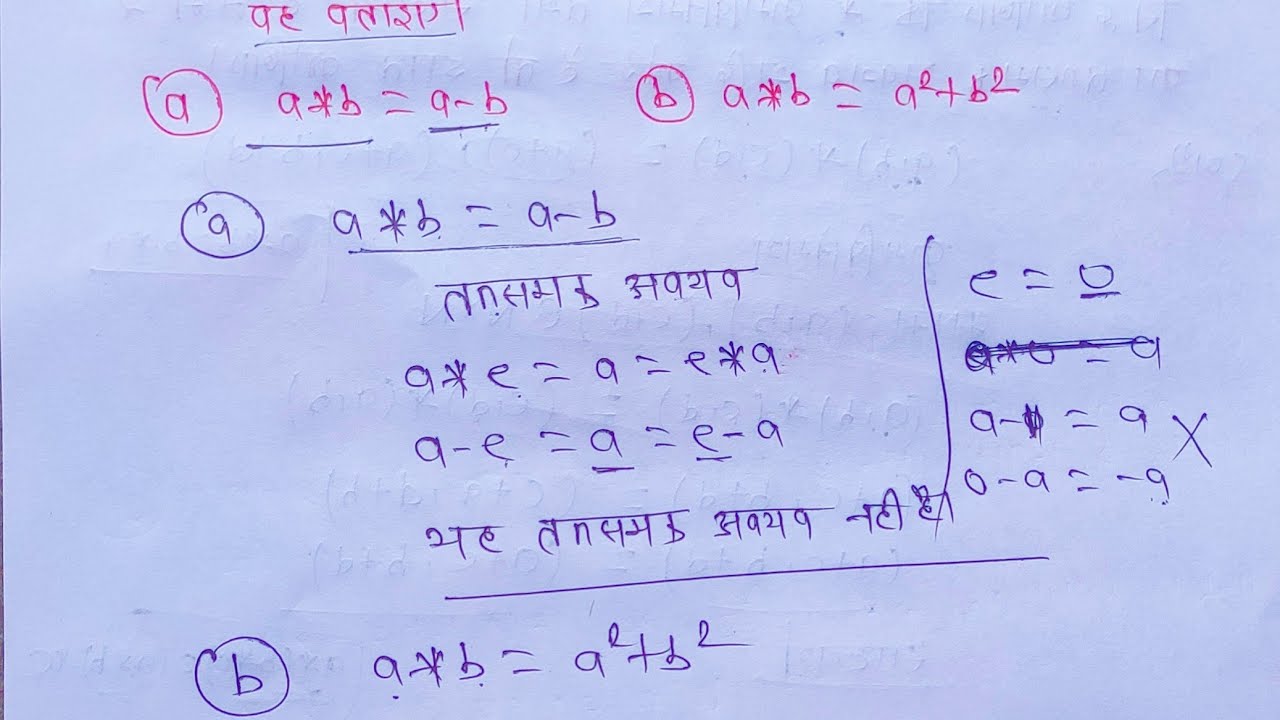 यह बताइए।
(a) a*b = a-b (b) a*b = a²+b²
(a) a*b = a-b
तत्समक अवयव
a*e = a = e*a
a-e = a = e-a
यह तत्समक अवयव नहीं है।
e = 0
a-0 = a
0-a = -a ×
(b) a*b = a²+b²